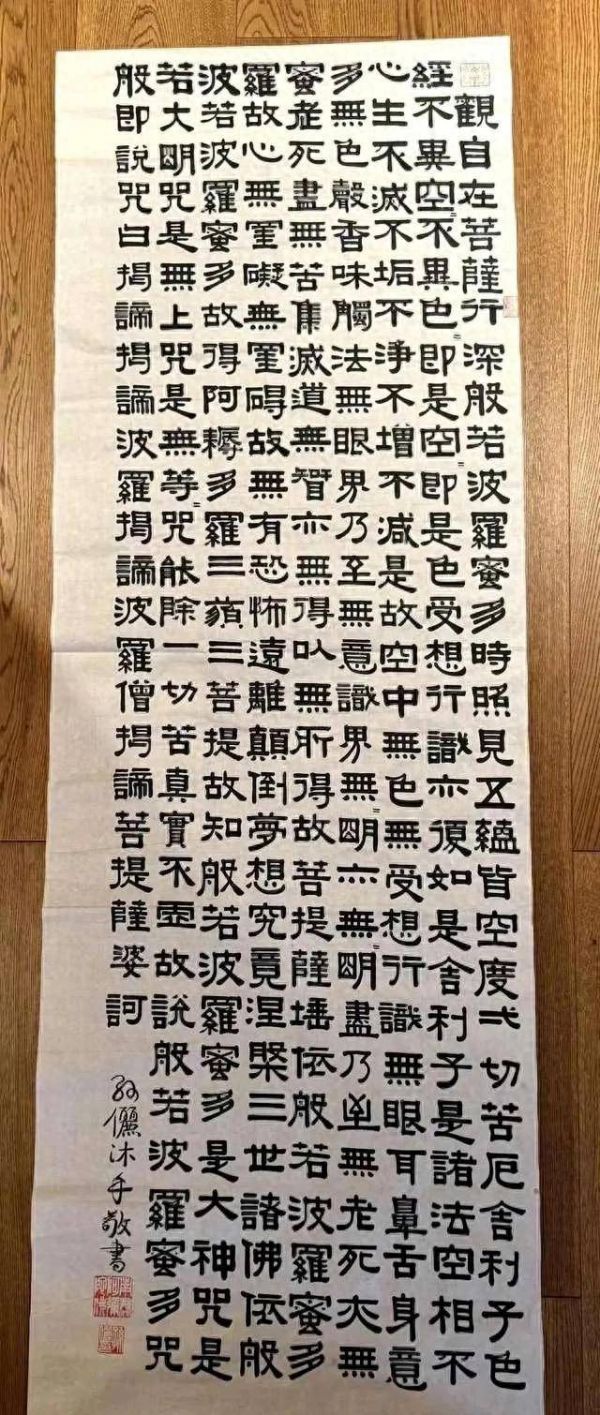 般若波羅蜜多心經
觀自在菩薩行深般若波羅蜜多時照見五蘊皆空度弌切苦厄舍利子色
不異空〻不異色〻即是空〻即是色受想行識亦復如是舍利子是諸法空相不
生不滅不垢不淨不增不減是故空中無色無受想行識無眼耳鼻舌身意
無色聲香味觸法無眼界乃至無意識界無〻明亦無〻明盡乃至無老死亦無
老死盡無苦集滅道無智亦無得以無所得故菩提薩埵依般若波羅蜜多
故心無罣礙無罣碍故無有恐怖遠離顛倒夢想究竟涅槃三世諸佛依般
若波羅蜜多故得阿耨多羅三藐三菩提故知般若波羅蜜多是大神咒是
大明咒是無上咒是無等〻咒能除一切苦真實不虛故說般若波羅蜜多咒
即說咒曰揭諦揭諦波羅揭諦波羅僧揭諦菩提薩婆訶
孫儷沐手敬書